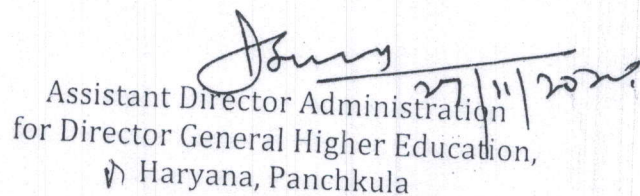 Assistant Director Administration
for Director General Higher Education,
Haryana, Panchkula